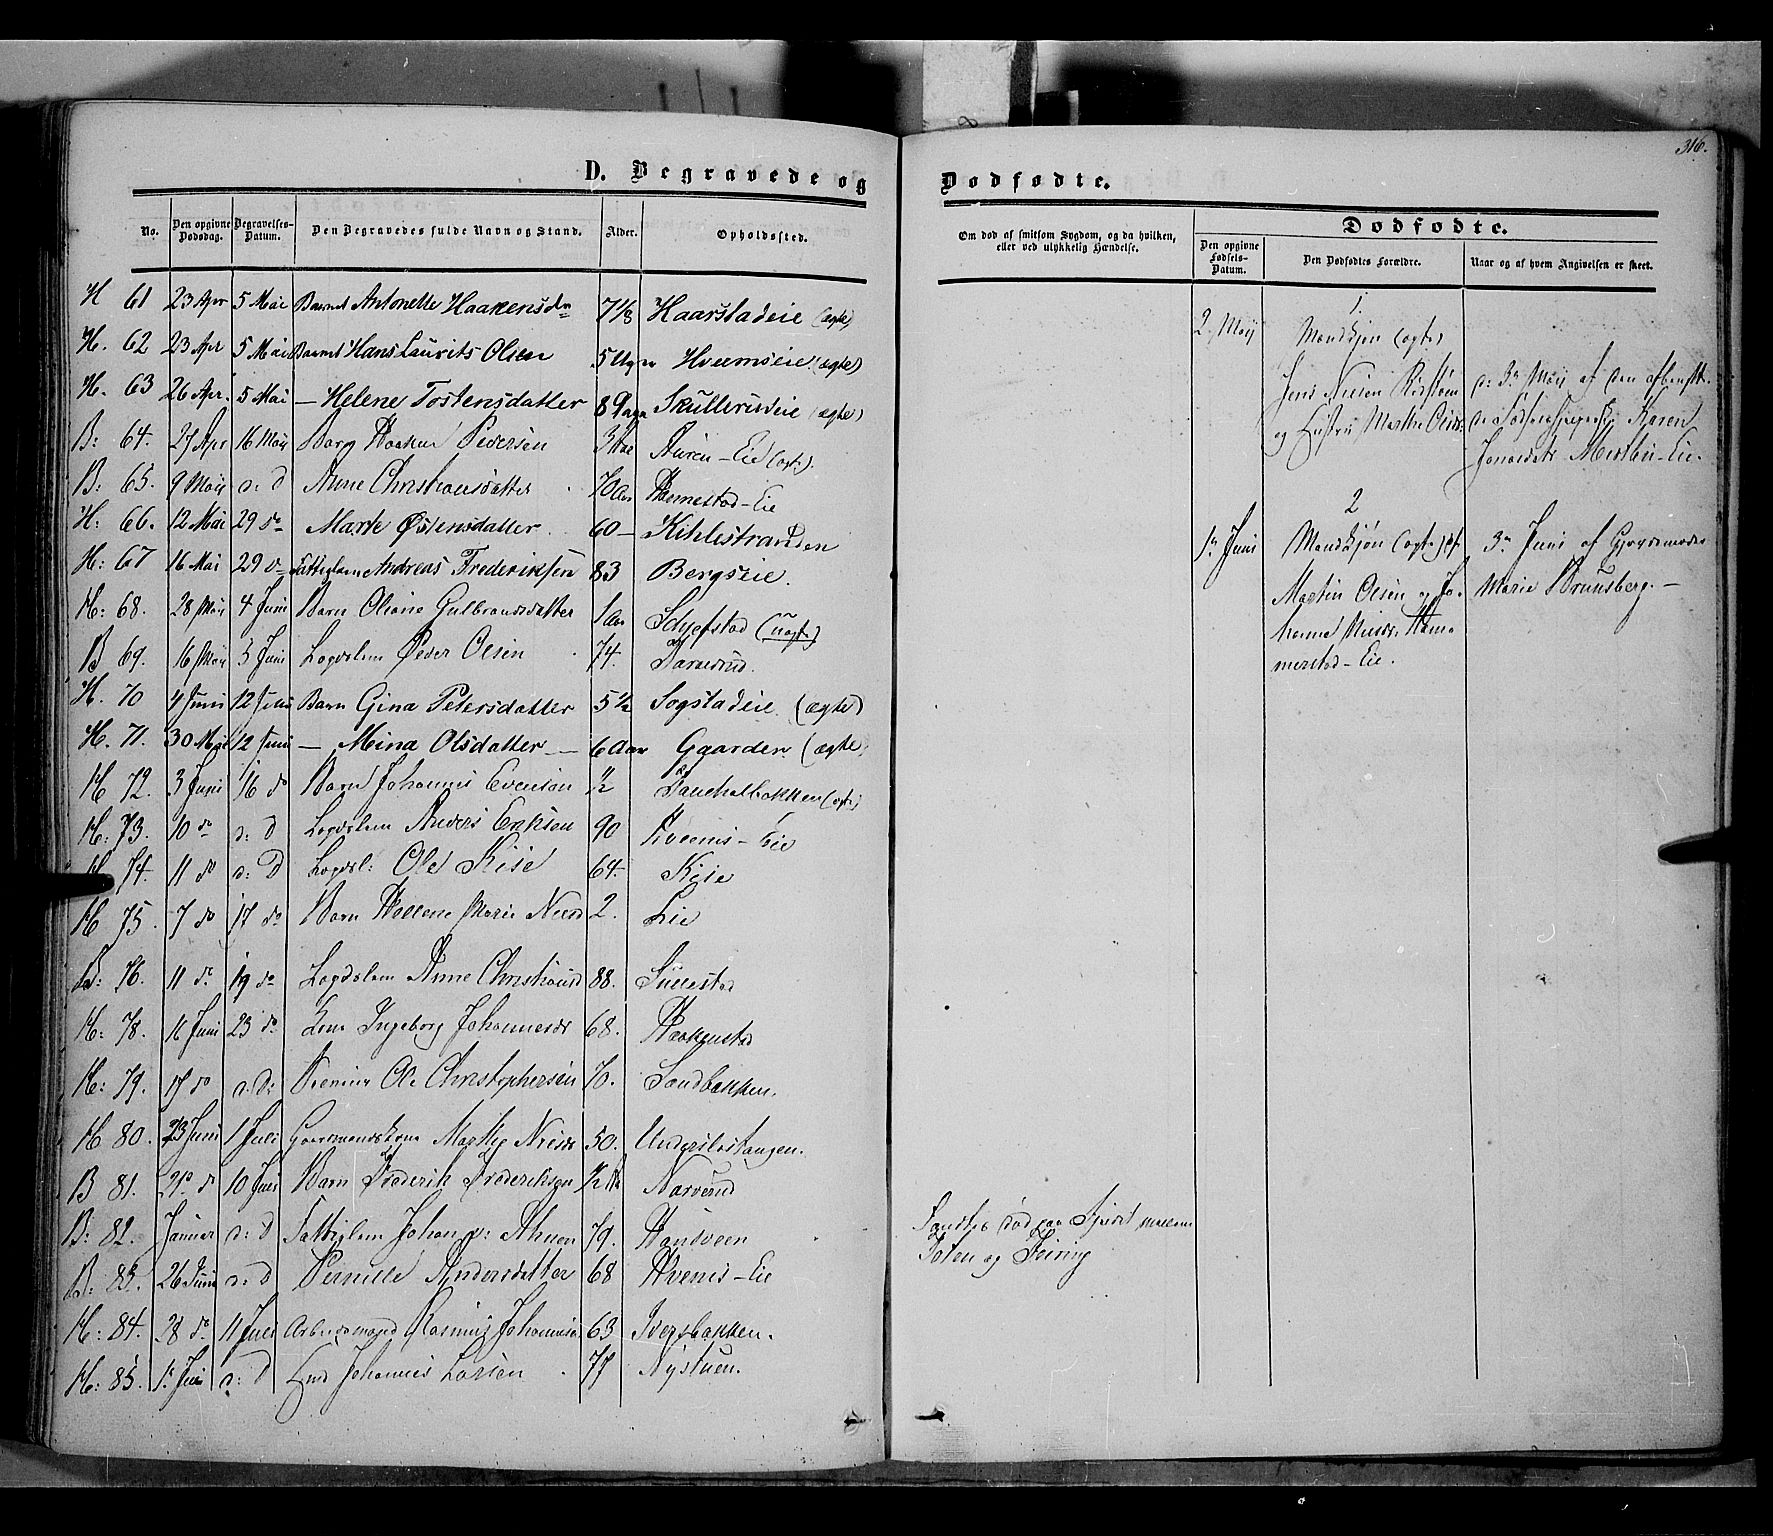 316.
D. Begravede og
Dødfødte.
No. Den opgivne Dødsdag. Begravelses-Datum. Den Begravedes fulde Navn og Stand. Alder. Opholdssted.
Om død af smitsom Sygdom, og da hvilken, eller ved ulykkelig Hændelse.
Dødfødte.
Den opgivne Fødsels-Datum. Den Dødfødtes Forældre. Naar og af hvem Angivelsen er skeet.
H 61 23 Apr 5 Mai Barnet Antonette Haakensdr 7 1/8 Haarstadeie (ægte)
H. 62 23 Apr 5 Mai Barnet Hans Laurits Olsen 5 Ugr Hveemseie (ægte)
H. 63 26 Apr. 5 Mai — Helene Tostensdatter 8 Dage Skullerudeie (ægte)
B: 64. 27 Apr 16 Maij Barn Haaken Pedersen 3 Eie (ægte)
B: 65. 9 Maij d: D Anne Christiansdatter 70 Aar Hannestad-Eie
H: 66. 12 Mai 29 do Marte Østensdatter 60 — Kihlestranden
H: 67 16 Mai 29 do Fattiglem Andreas Frederiksen 83 Bergseie.
H: 68. 28 Maij 4 Juni Barn Oliane Gulbrandsdatter 1 Aar (uægte)
B 69. 16 Maij 5 Juni Logdslem Peder Olsen 74.
H. 70 4 Juni 12 Juni Barn Gina Petersdatter 5 1/2 Sogstadeie (ægte)
H. 71. 30 Mai 12 Juni — Mina Olsdatter — 6 Aar Gaarder (ægte)
H 72. 3 Juni 16 do Barn Johannes Evensen 1/2
H: 73. 10 do d: D Logdslem Anders Eriksen 90 Hveems-Eie
H 74. 11 do d: D Logdsl: Ole Kise 64. Kise
H 75. 7 do 17 do Barn Hellene Marie Nilsd 2. Lie
B: 76. 11 do 19 do Logdslem Anne Christiansd 88. Sillestad
H: 78. 16 Juni 23 do Kone Ingeborg Johannesdr 68. Haakenstad
H: 79. 17 do d: D: Ole Christophersen 70. Sandbakken.
H 80. 23 Juni 1 Juli Gaardmandskone Nielsdr 50.
B 81. 21 do 10 Juli Barn Frederik Frederiksen 1/2 Narverud
B: 82. Januar d: D Fattiglem Johan 79. Handsveen
B: 83. 26 Juni d: D Pernille Andersdatter 68 Hvems-Eie
H: 84. 28 do 11 Juli Arbeidsmand Rasmus Johannesen 63 Iversbakken.
H: 85. 1 Juli d: D Johannes Larsen 77 Nystuen.
død paa mellem
Toten og Feiring
1.
2 Maij Mandkjøn (ægte)
Jens Nielsen
og Hustru Marthe Olsdr
d: 3 Maij af den
Karen
Eie.
2
1 Juni Mandkjøn (ægte) af
Martin Olsen og Jo-
hanne Nilsdr Ham-
merstad-Eie.
3 Juni af Gjordemoder
Marie Brunsberg. —